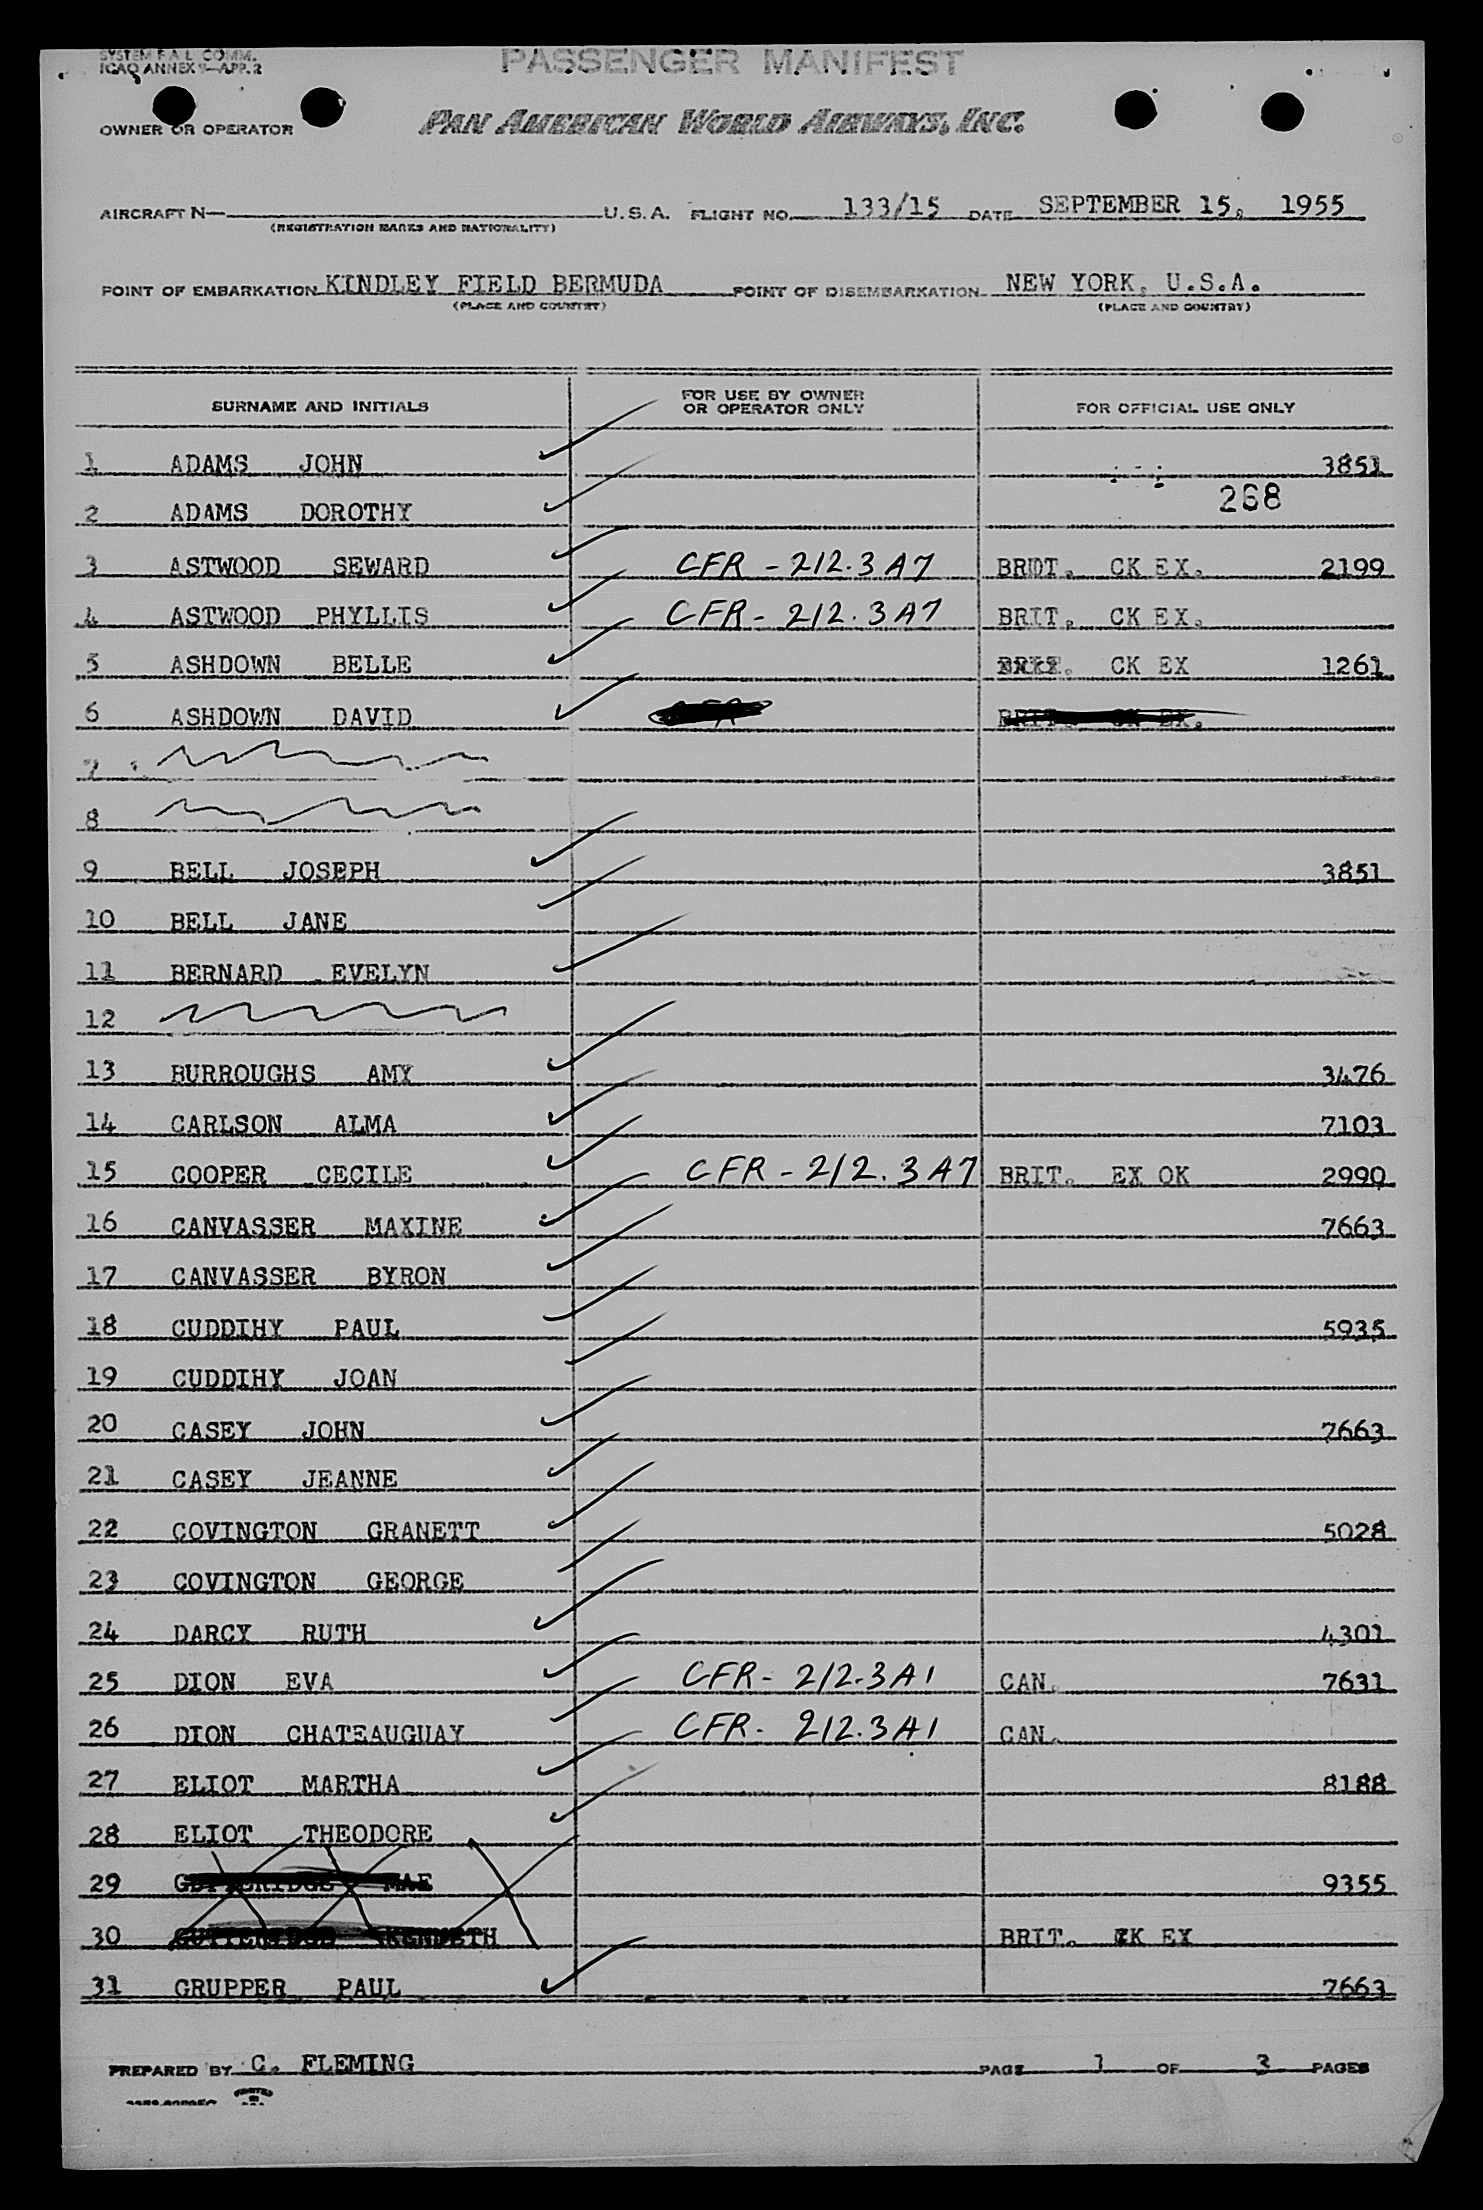 SYSTEM F.A.L. COMM. PASSENGER MANIFEST
ICAO ANNEX 9—APP. 2
OWNER OR OPERATOR PAN AMERICAN WORLD AIRWAYS, INC.
AIRCRAFT N— U.S.A. FLIGHT NO. 133/15 DATE SEPTEMBER 15, 1955
(REGISTRATION MARKS AND NATIONALITY)
POINT OF EMBARKATION KINDLEY FIELD BERMUDA POINT OF DISEMBARKATION NEW YORK, U.S.A.
(PLACE AND COUNTRY) (PLACE AND COUNTRY)
SURNAME AND INITIALS FOR USE BY OWNER OR OPERATOR ONLY FOR OFFICIAL USE ONLY
1 ADAMS JOHN 3851
268
2 ADAMS DOROTHY
3 ASTWOOD SEWARD CFR - 212.3 A7 BRIT. CK EX. 2199
4 ASTWOOD PHYLLIS CFR - 212.3 A7 BRIT. CK EX.
5 ASHDOWN BELLE CK EX 1261
6 ASHDOWN DAVID BRIT. CK EX.
7
8
9 BELL JOSEPH 3851
10 BELL JANE
11 BERNARD EVELYN
12
13 BURROUGHS AMY 3476
14 CARLSON ALMA 7103
15 COOPER CECILE CFR - 212.3 A7 BRIT. EX OK 2990
16 CANVASSER MAXINE 7663
17 CANVASSER BYRON
18 CUDDIHY PAUL 5935
19 CUDDIHY JOAN
20 CASEY JOHN 7663
21 CASEY JEANNE
22 COVINGTON GRANETT 5028
23 COVINGTON GEORGE
24 DARCY RUTH 4301
25 DION EVA CFR - 212.3 A1 CAN. 7631
26 DION CHATEAUGUAY CFR - 212.3 A1 CAN.
27 ELIOT MARTHA 8188
28 ELIOT THEODORE
29 GUTTERIDGE MAE 9355
30 GUTTERIDGE KENNETH BRIT. CK EX
31 GRUPPER PAUL 7663
PREPARED BY C. FLEMING PAGE 1 OF 3 PAGES